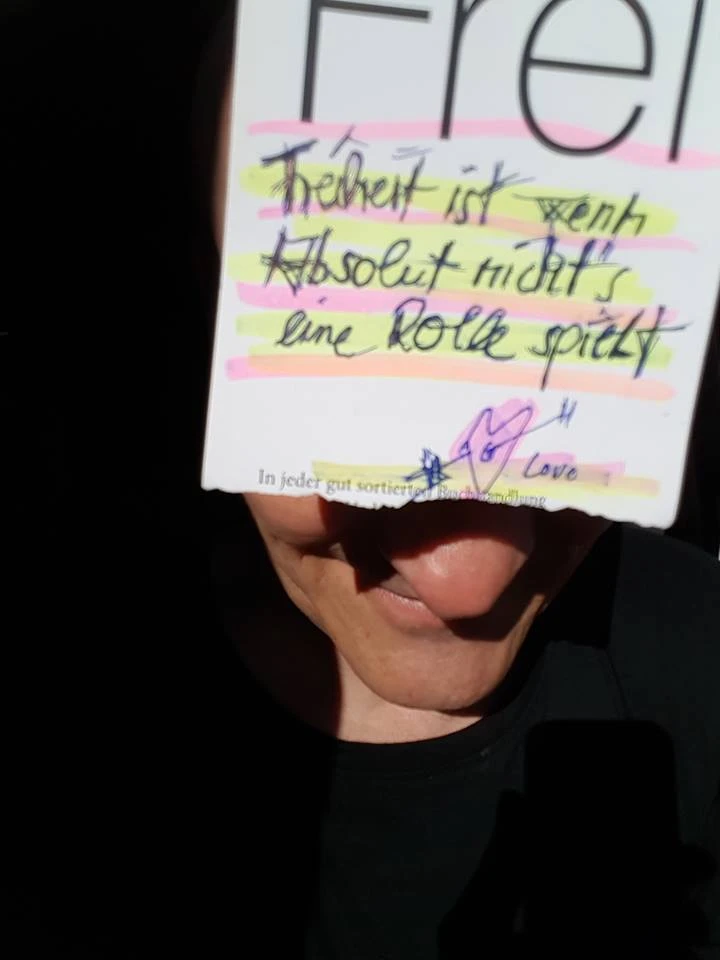 Frei
Freiheit ist wenn
Absolut nicht's
eine Rolle spielt
Love
In jeder gut sortierten Buchhandlung